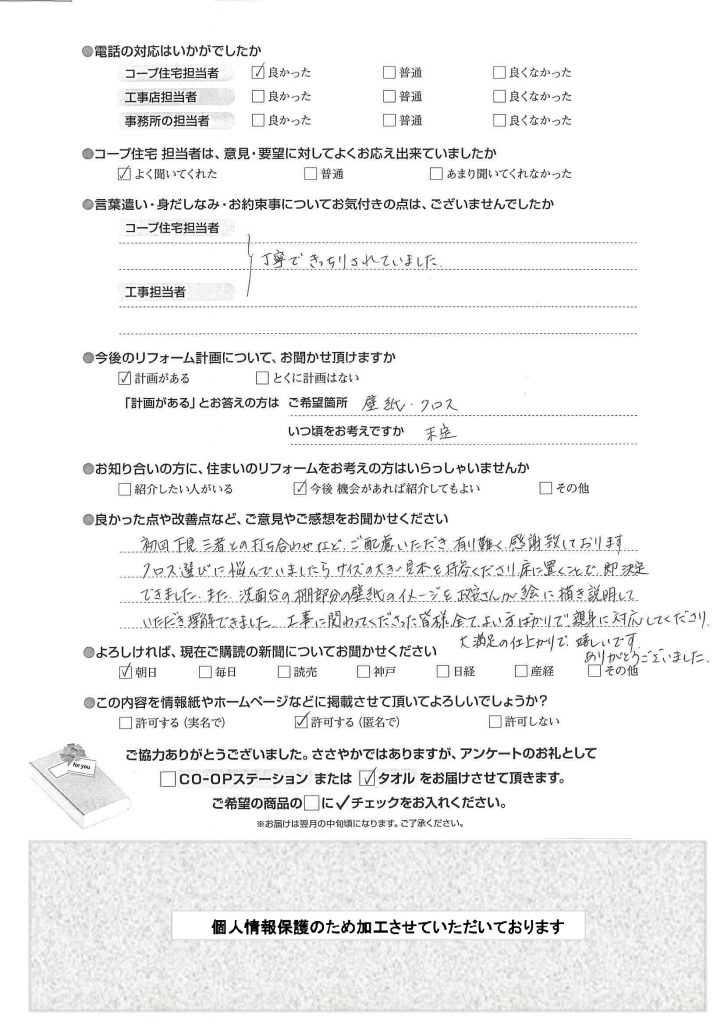 ●電話の対応はいかがでしたか
コープ住宅担当者 ☑良かった □普通 □良くなかった
工事店担当者 □良かった □普通 □良くなかった
事務所の担当者 □良かった □普通 □良くなかった
●コープ住宅 担当者は、意見・要望に対してよくお応え出来ていましたか
☑よく聞いてくれた □普通 □あまり聞いてくれなかった
●言葉遣い・身だしなみ・お約束事についてお気付きの点は、ございませんでしたか
コープ住宅担当者
丁寧できっちりされていました。
工事担当者
●今後のリフォーム計画について、お聞かせ頂けますか
☑計画がある □とくに計画はない
「計画がある」とお答えの方は ご希望箇所 壁紙・クロス
いつ頃をお考えですか 未定
●お知り合いの方に、住まいのリフォームをお考えの方はいらっしゃいませんか
□紹介したい人がいる ☑今後 機会があれば紹介してもよい □その他
●良かった点や改善点など、ご意見やご感想をお聞かせください
初回下見三者との打ち合わせなど、ご配慮いただき有り難く感謝致しております
クロス選びに悩んでいましたらサイズの大きい見本を持参くださり床に置くことで即決定
できました。また、洗面台の棚部分の壁紙のイメージを さんが絵に描き説明して
いただき理解できました。工事に関わってくださった皆様全てよい方ばかりで親身に対応してくださり、
大満足の仕上がりで、嬉しいです。
ありがとうございました。
●よろしければ、現在ご購読の新聞についてお聞かせください
☑朝日 □毎日 □読売 □神戸 □日経 □産経 □その他
●この内容を情報紙やホームページなどに掲載させて頂いてよろしいでしょうか?
□許可する(実名で) ☑許可する(匿名で) □許可しない
for you
ご協力ありがとうございました。ささやかではありますが、アンケートのお礼として
□CO-OPステーション または ☑タオル をお届けさせて頂きます。
ご希望の商品の□に✓チェックをお入れください。
※お届けは翌月の中旬頃になります。ご了承ください。
個人情報保護のため加工させていただいております